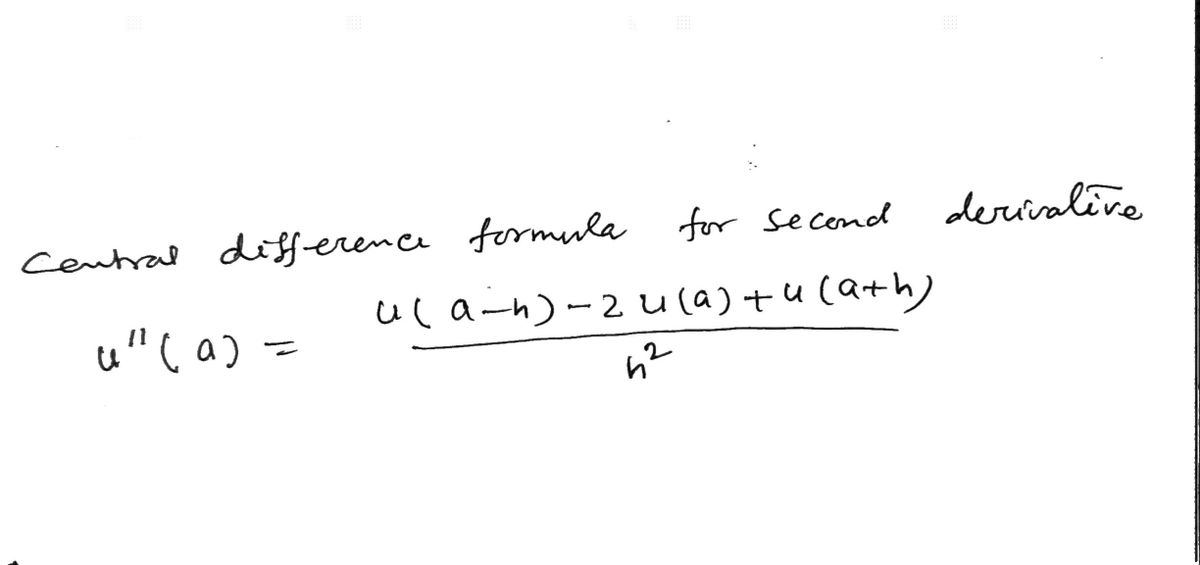 Central difference formula for second derivative
u''(a) = \frac{u(a-h)-2u(a)+u(a+h)}{h^2}